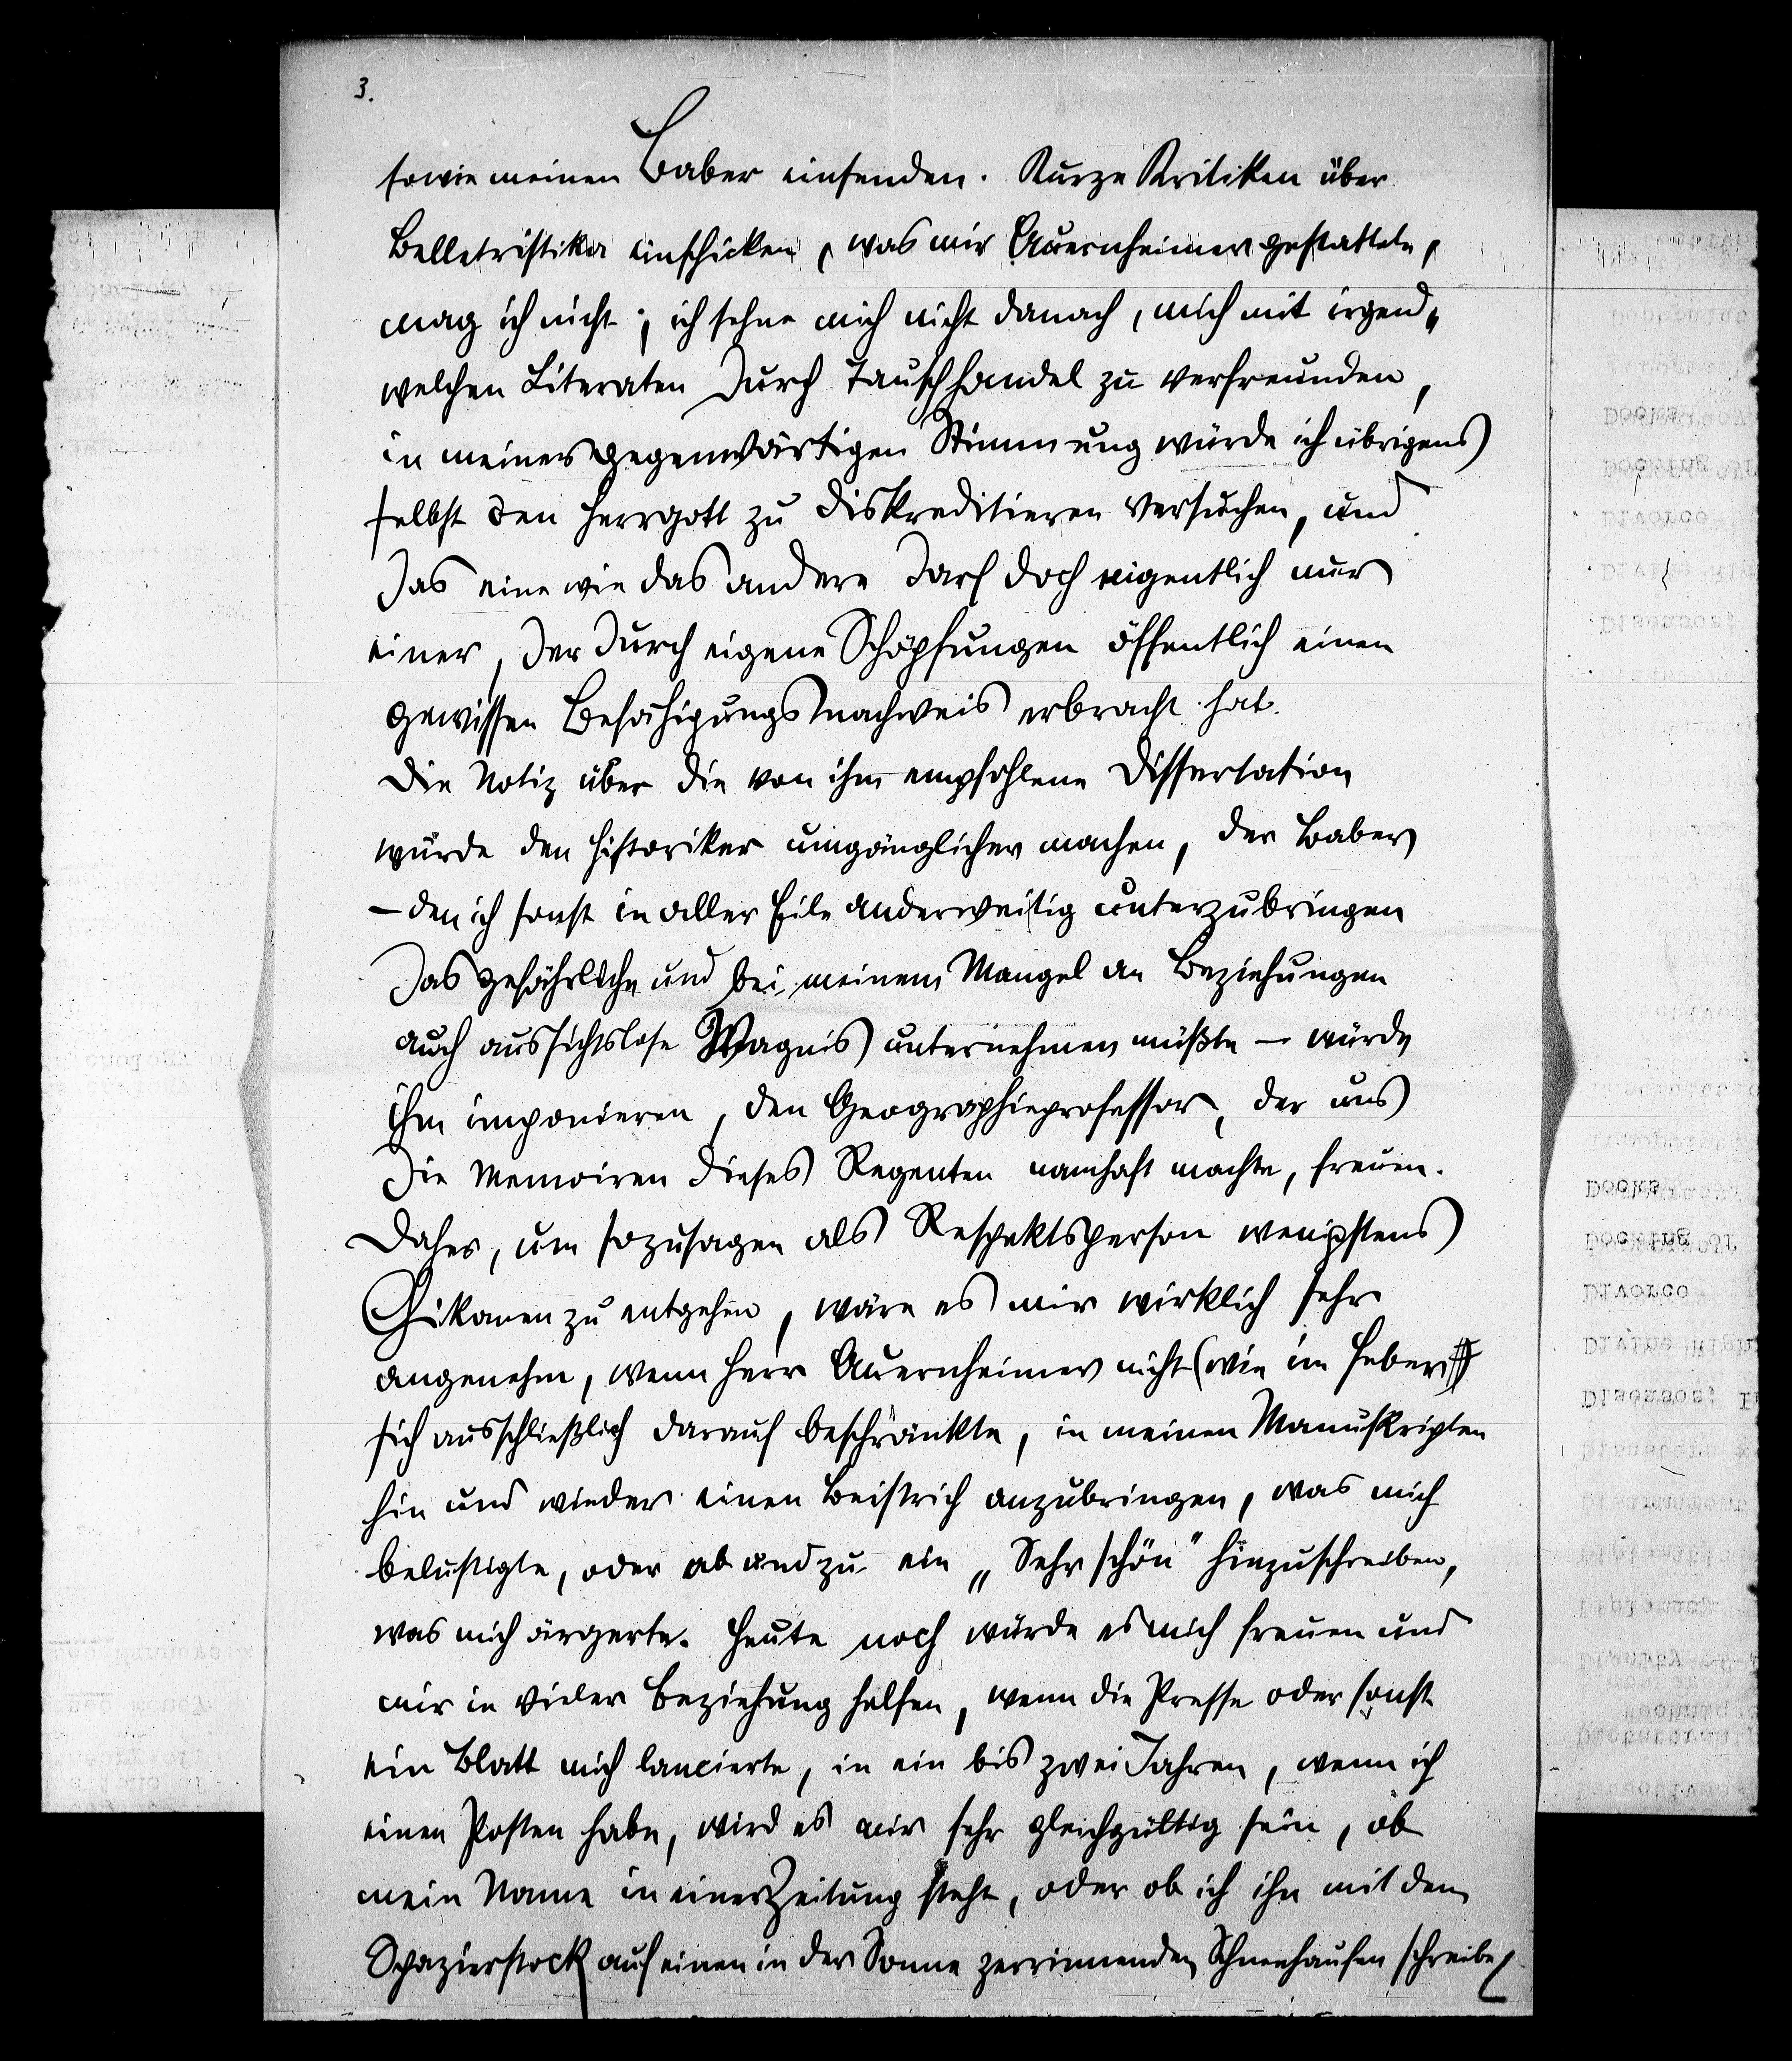 3.
sowie meinen Baber einsenden. Kurze Kritiken über
Belletristika einschicken, was mir Auernheimer gestattete,
mag ich nicht; ich sehne mich nicht danach, mich mit irgend„
welchen Literaten durch Tauschhandel zu verfreunden,
in meiner gegenwärtigen Stimmung würde ich übrigens
selbst den Herrgott zu diskreditieren versuchen, und
das eine wie das andere darf doch eigentlich nur
einer, der durch eigene Schöpfungen öffentlich einen
gewissen Befähigungsnachweis erbracht hat.
Die Notiz über die von ihm empfohlene Dissertation
würde den Historiker umgänglicher machen, der Baber
– den ich sonst in aller Eile anderweitig unterzubringen
das gefährliche und bei meinem Mangel an Beziehungen
auch aussichtslose Wagnis unternehmen müßte – würde
ihm imponieren, den Geographieprofessor, der uns
die Memoiren dieses Regenten namhaft machte, freuen.
Daher, um sozusagen als Respektsperson wenigstens
Chikanen zu entgehen, wäre es mir wirklich sehr
angenehm, wenn Herr Auernheimer nicht (wie im Feber)
sich ausschließlich darauf beschränkte, in meinen Manuskripten
hin und wieder einen Beistrich anzubringen, was mich
belustigte, oder ab und zu ein „Sehr schön" hinzuschreiben,
was mich ärgerte. Heute noch würde es mich freuen und
mir in vieler Beziehung helfen, wenn die Presse oder sonst
ein Blatt mich lancierte, in ein bis zwei Jahren, wenn ich
einen Posten habe, wird es mir sehr gleichgültig sein, ob
mein Name in einer Zeitung steht, oder ob ich ihn mit dem
Spazierstock auf einen in der Sonne zerrinnenden Schneehaufen schreibe
Docks
Divorce
Docks
Docking
Divorce
Divine Right